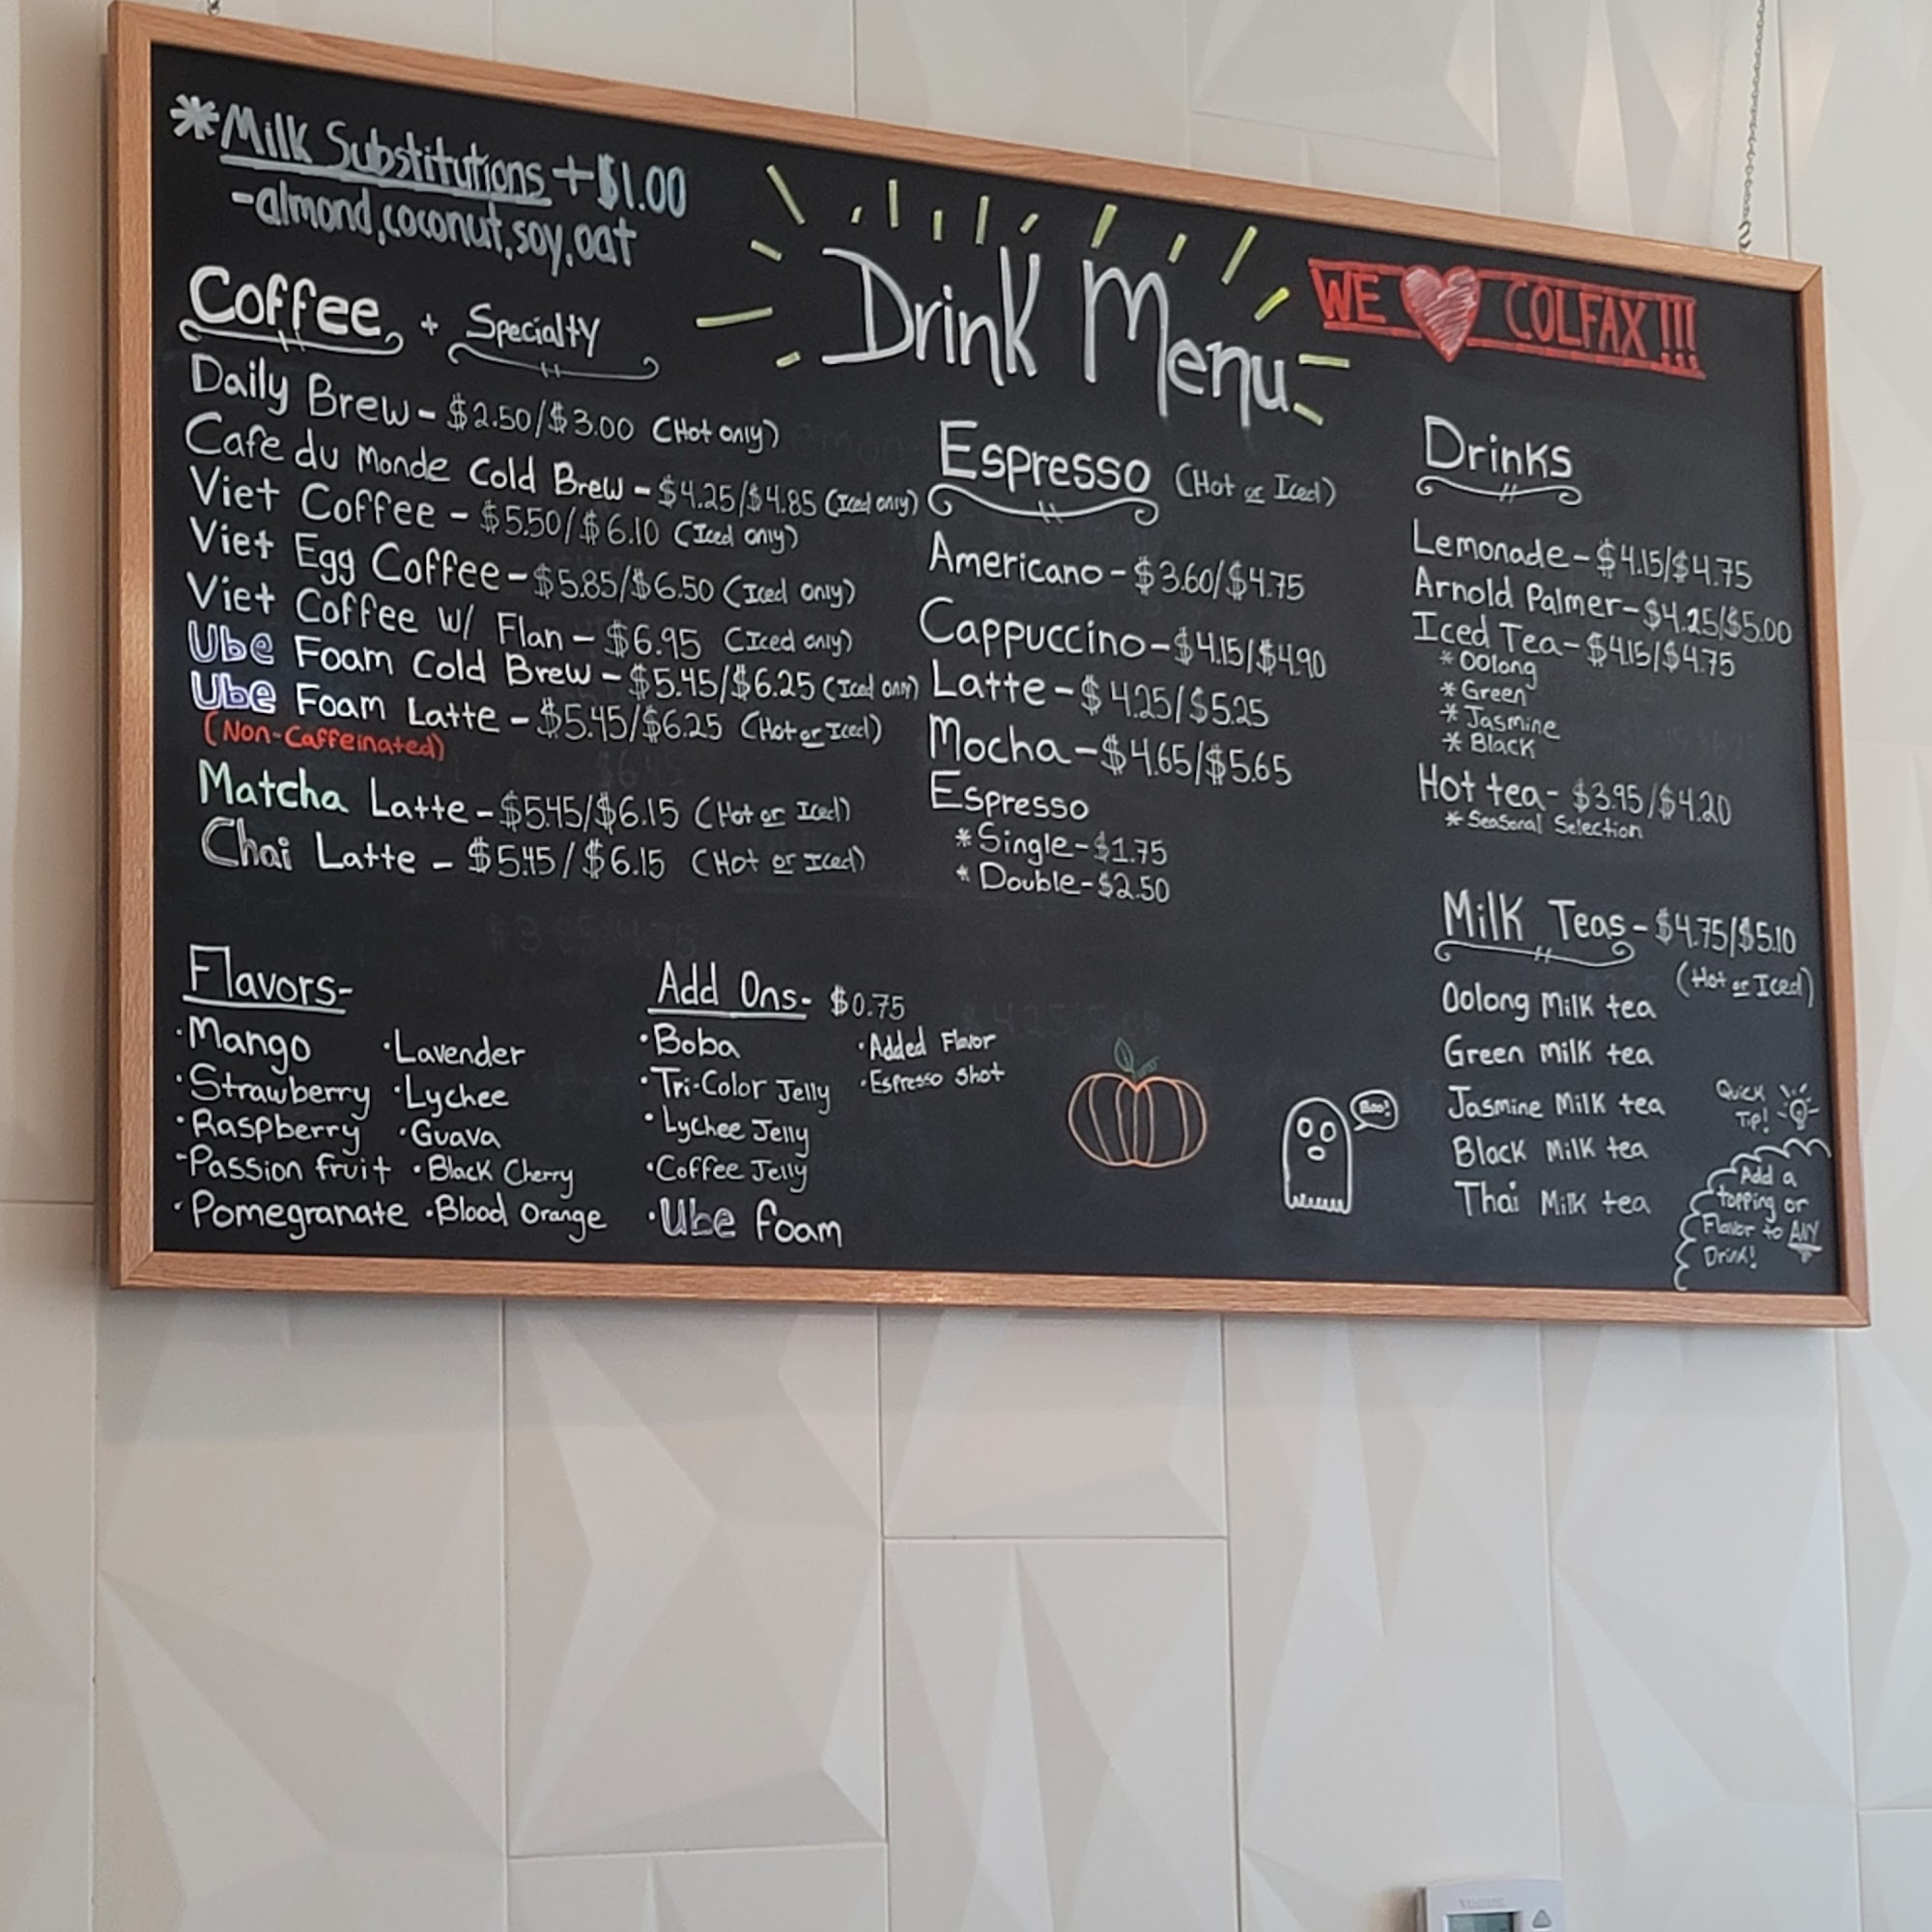 *Milk Substitutions + $1.00
-almond, coconut, soy, oat
Drink Menu
WE COLFAX!!!
Coffee + Specialty
Daily Brew - $2.50/$3.00 (Hot only)
Cafe du Monde Cold Brew - $4.25/$4.85 (Iced only)
Viet Coffee - $5.50/$6.10 (Iced only)
Viet Egg Coffee - $5.85/$6.50 (Iced only)
Viet Coffee w/ Flan - $6.95 (Iced only)
Ube Foam Cold Brew - $5.45/$6.25 (Iced only)
Ube Foam Latte - $5.45/$6.25 (Hot or Iced)
(Non-Caffeinated)
Matcha Latte - $5.45/$6.15 (Hot or Iced)
Chai Latte - $5.45/$6.15 (Hot or Iced)
Espresso (Hot or Iced)
Americano - $3.60/$4.75
Cappuccino - $4.15/$4.90
Latte - $4.25/$5.25
Mocha - $4.65/$5.65
Espresso
*Single - $1.75
*Double - $2.50
Drinks
Lemonade - $4.15/$4.75
Arnold Palmer - $4.25/$5.00
Iced Tea - $4.15/$4.75
*Oolong
*Green
*Jasmine
*Black
Hot tea - $3.95/$4.20
*Seasonal Selection
Milk Teas - $4.75/$5.10
(Hot or Iced)
Oolong Milk tea
Green milk tea
Jasmine Milk tea
Black Milk tea
Thai Milk tea
Quick
Tip!
Add a
topping or
Flavor to ANY
Drink!
Flavors-
·Mango ·Lavender
·Strawberry ·Lychee
·Raspberry ·Guava
-Passion fruit ·Black Cherry
·Pomegranate ·Blood Orange
Add Ons- $0.75
·Boba ·Added Flavor
·Tri-Color Jelly ·Espresso Shot
·Lychee Jelly
·Coffee Jelly
·Ube foam
Boo!